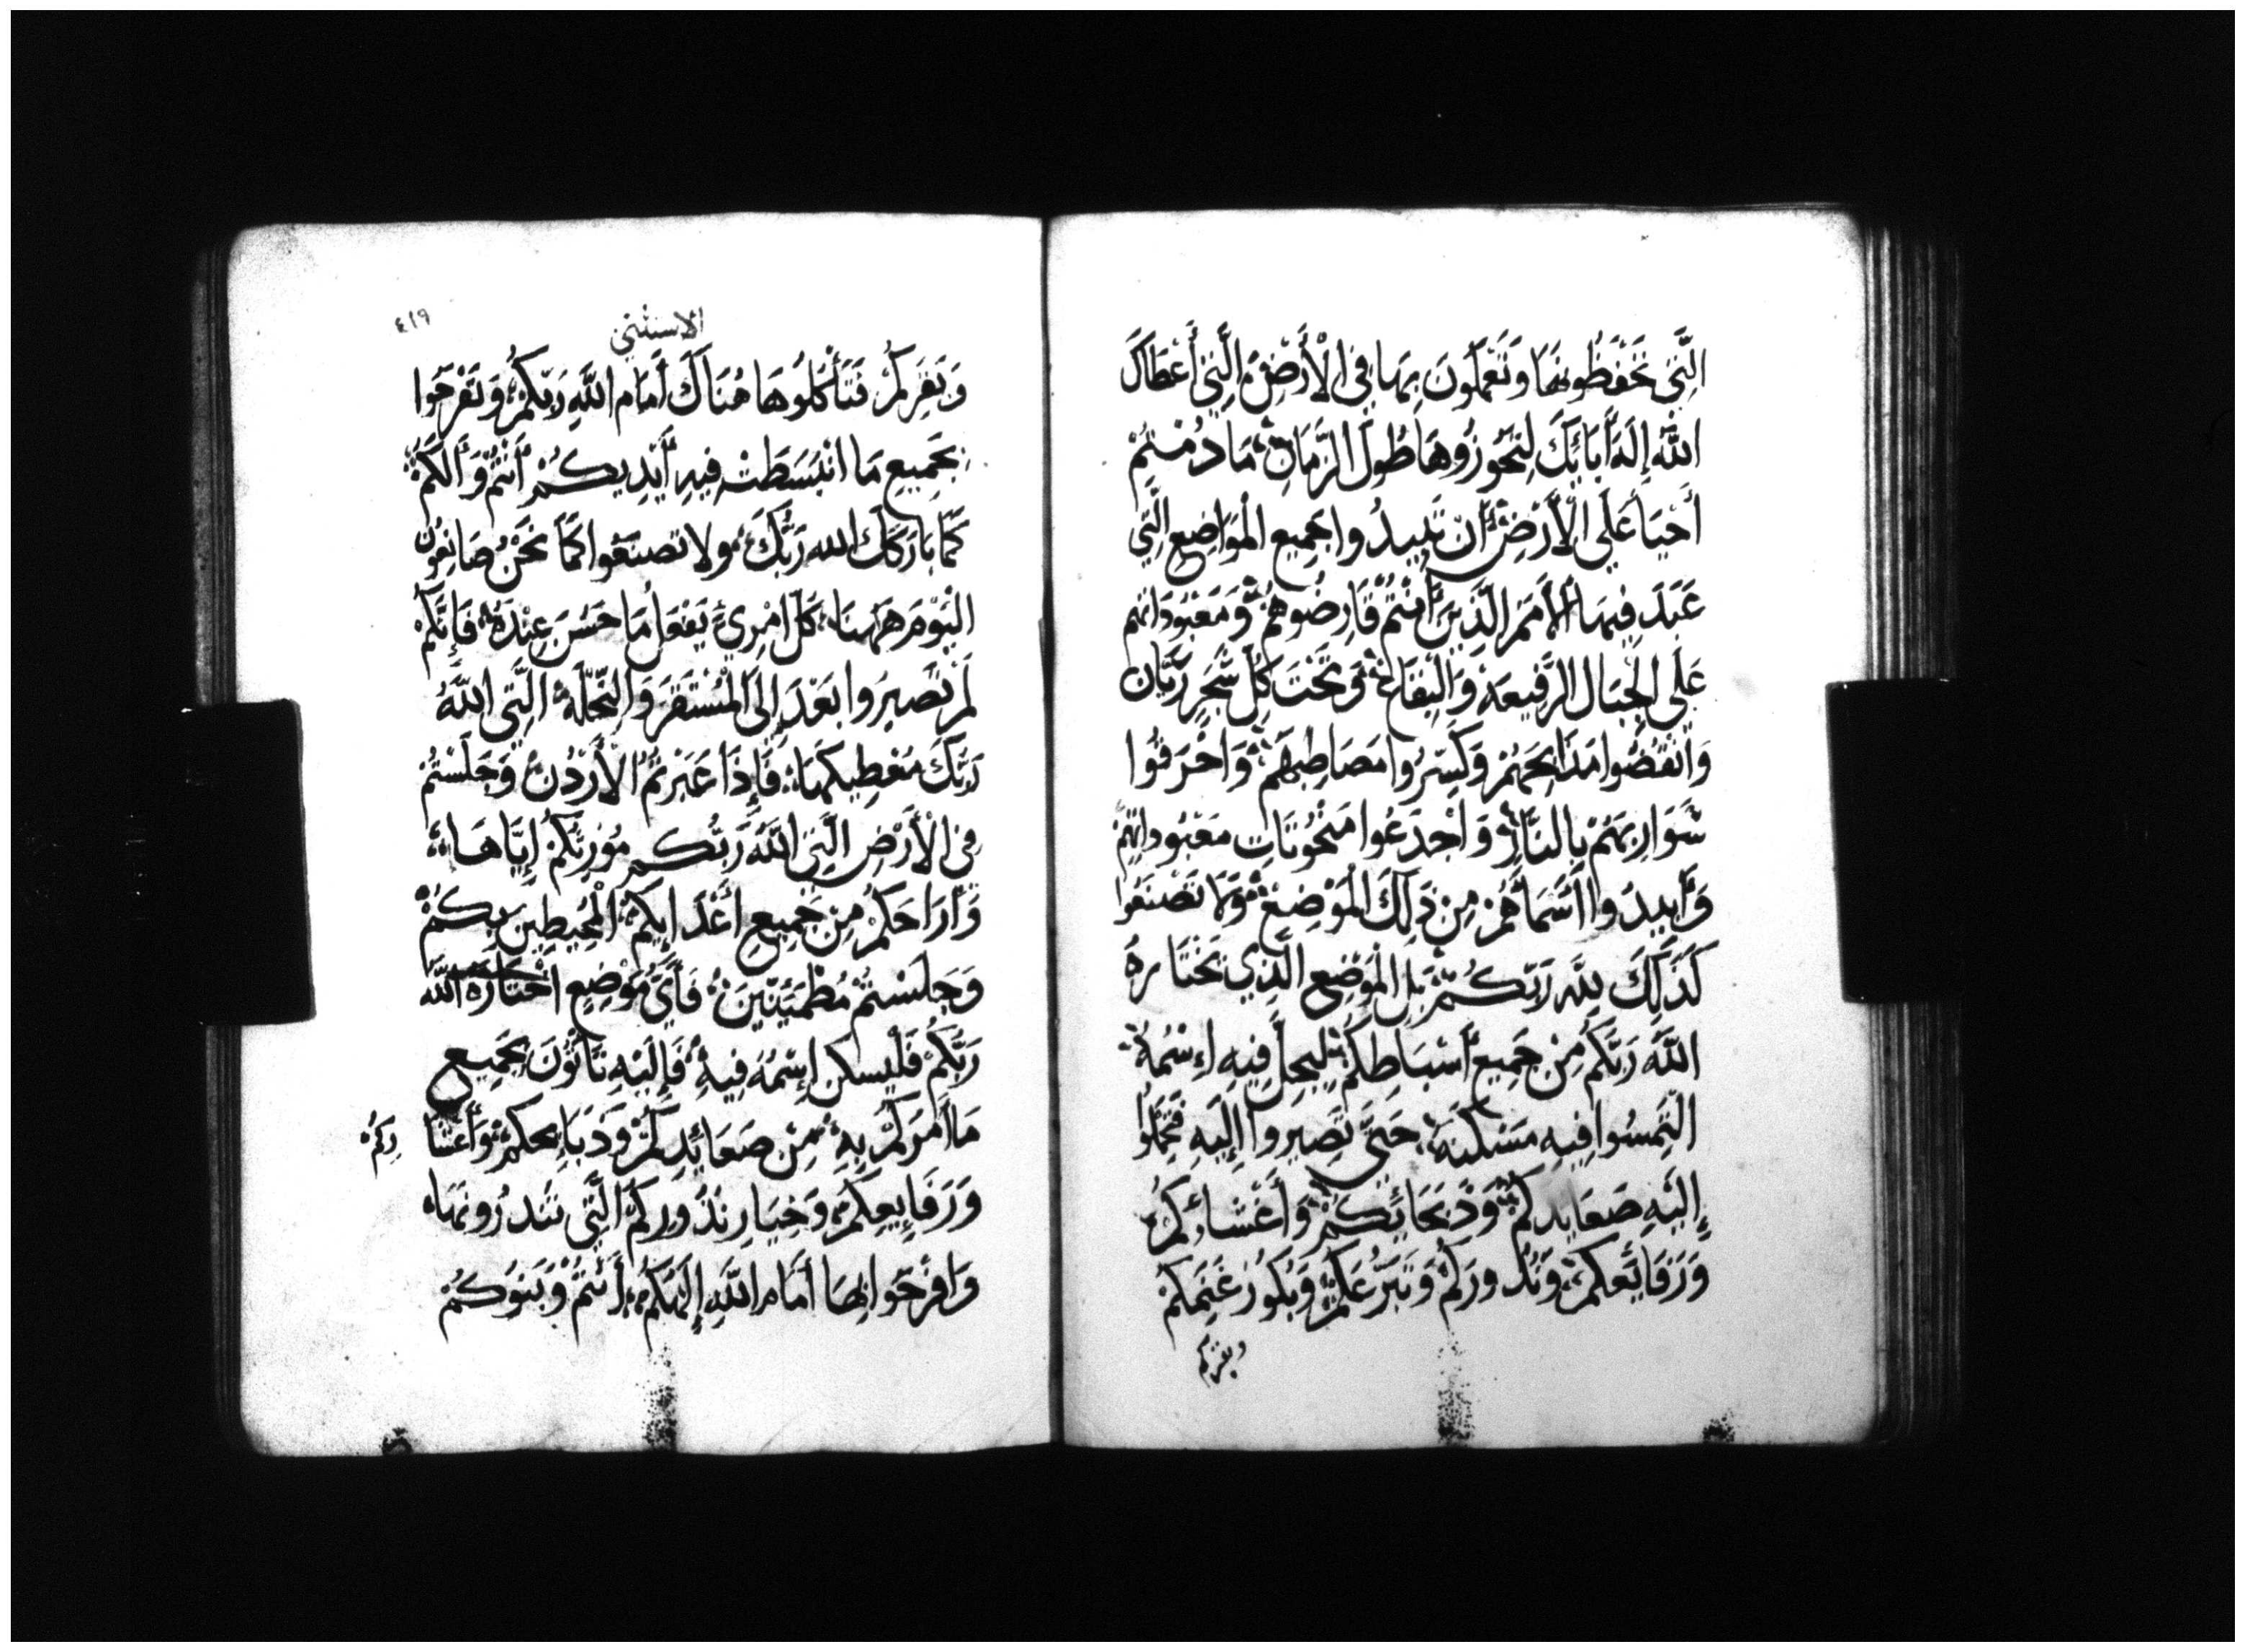 الَّتِي تَحْفَظُونَهَا وَتَعْمَلُونَ بِهَا فِي الْأَرْضِ الَّتِي أَعْطَاكَ
اللَّهُ إِلَهُ أَبَائِكَ لِتَحُوزُوهَا طُولَ الزَّمَانِ مَا دُمْتُمْ
أَحْيَاءَ عَلَي الْأَرْضِ أَنْ تَبِيدُوا جَمِيعِ الْمَوَاضِعِ الَّتِي
عَبَدَ فِيهَا الْأُمَمُ الَّذِينَ أَنْتُمْ قَارِضُوهُمْ وَمَعْبُودَاتِهِمْ
عَلَى الْجِبَالِ الرَّفِيعَةِ وَالْيفَاعِ وَتَحْتَ كُلِّ شَجَرٍ رَيَّان
وَانْقُضُوا مَذَابِحَهُمْ وَكَسِّرُوا مَصَاطِبَهُمْ وَاحْرَقُوا
سَوَارِيَهُمْ بِالنَّارِ وَاجْدَعُوا مَنْحُوتَاتِ مَعْبُودَاتِهِمْ
وَأَبِيدُوا أَسْمَاَهُمْ مِنْ ذَلِكَ الْمَوْضِعِ وَلَا تَصْنَعُوا
كَذَلِكَ لِلَّهِ رَبِّكُمْ بَلِ الْمَوْضِعِ الَّذِي يَخْتَارهُ
اللَّهُ رَبُّكُمْ مِنْ جَمِيعِ أَسْبَاطِكُمْ لِيحِلَّ فِيهِ إِسْمُهُ
الْتَمِسُوا فِيهِ مَسْكَنَهُ حَتَّى تَصِيرُوا إِلَيهِ فَتَحْمِلُوا
إِلَيْهِ صَعَايِدكُمْ وَذَبَحَائِكُمْ وَأَعْشَارِكُمْ
وَرَفَايِعكُمْ وَنُذُورَكُمْ وَتَبَرُّعَكُمْ وَبُكُورُ غَنَمَكُمْ
وبقركم
٤١٩
الاستثنى
وَبَقَرِكُمْ فَتَأْكُلُوهَا هُنَاكَ أَمَامَ اللَّهِ رَبِّكُمْ وَتَفْرَحُوا
بِجَمِيعِ مَا انْبَسَطَتْ فِيهِ أَيْدِيكُمْ أَنْتُمْ وَأَلَكُمْ
كَمَا بَارَكَكَ اللهُ رَبُّكَ وَلا تَصنَعُوا كَمَا نَحْنُ صَانِعُون
الْيَوْمَ هَهُنَا كُلُّ امْرِيٍ يَفْعَلُ مَا حَسُنَ عِنْدَهُ فَإِنَّكُمْ
لَمْ تَصِيرُوا بَعْدَ إِلَى الْمُسْتَقَرِّ وَالنِّحْلَةِ الَّتِي اللَّهُ
رَبُّكَ مُعْطِيكَهَا فَإِذَا عَبَرْتُمُ الْأَرْدُنَّ وَجَلَسْتُمْ
فِي الْأَرْضِ الَّتِي اللَّهُ رَبُّكُم مُوْرِثُكُمْ إِيَّاهَا
وَأَرَاحَكُمْ مِنْ جَمِيعِ أَعْدَايِكُمْ الْمُحِيطِينَ بِكُمْ
وَجَلَسْتُمْ مُطْمَئِنِّينَ فَأَيُّ مَوْضِعٍ اخْتَارَهُ اللَّهُ
رَبُّكُمْ فَلْيسكن إِسْمُهُ فِيهِ فَإِلَيْهِ تَاتُونَ بِجَمِيعِ
مَا أَمَرَكُمْ بِهِ مِنْ صَعَائِدِكُمْ وَذَبَايِحكُمْ وَأَعْشَا
رِكُمْ
وَرَفَايِعِكُمْ وَخِيَارِ نُذُورِكُمْ الَّتِي تَنْدُرُونَهَا
وَافْرَحُوا بِهَا أَمَامَ اللَّهِ إِلَهُكُمْ أَنْتُمْ وَبَنُوكُمْ